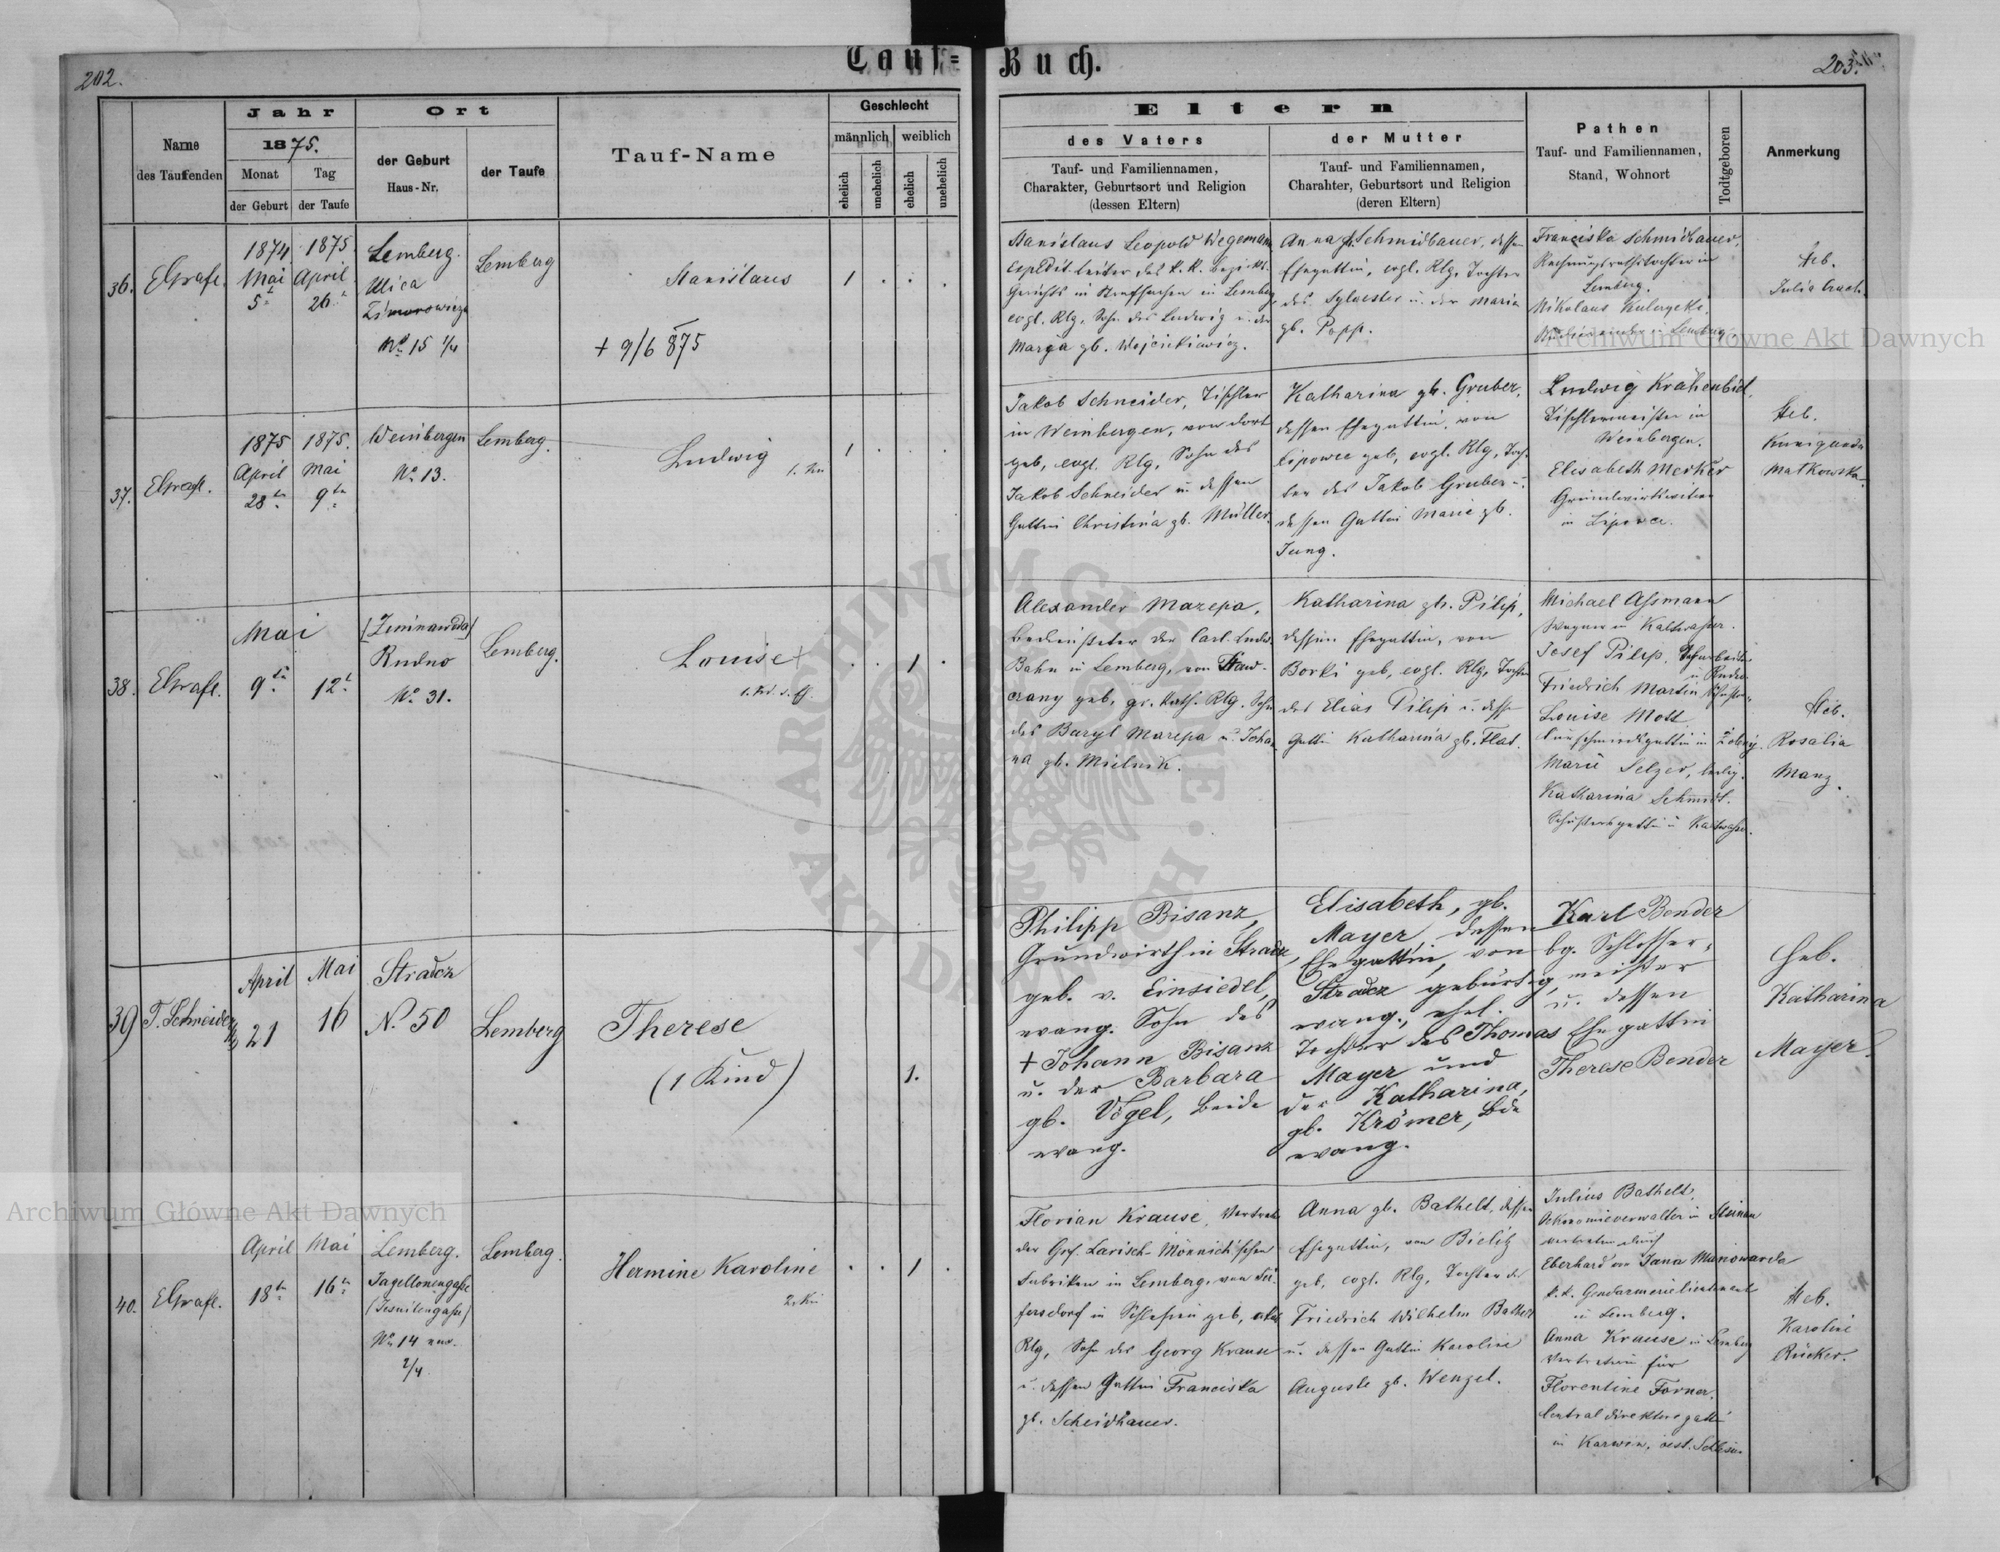 202.
Tauf=
Buch.
203.
Name
des Taufenden
Jahr
1875.
Monat
Tag
der Geburt
der Taufe
Ort
der Geburt
Haus-Nr.
der Taufe
Tauf-Name
Geschlecht
männlich
weiblich
ehelich
unehelich
ehelich
unehelich
Eltern
des Vaters
Tauf- und Familiennamen,
Charakter, Geburtsort und Religion
(dessen Eltern)
der Mutter
Tauf- und Familiennamen,
Charahter, Geburtsort und Religion
(deren Eltern)
Pathen
Tauf- und Familiennamen,
Stand, Wohnort
Todtgeboren
Anmerkung
36.
1874
Mai
5
1875
April
26
Lemberg.
Ulica
No 15 1/4
Lemberg
Stanislaus
+ 9/6 875
1
Stanislaus Leopold Wegemann
Expedit. Leiter des k. k. Bezirks-
Gerichts in Strafsachen in Lemberg
evgl. Rlg. Sohn des Ludwig u. der
Marga gb. Wojcickiewicz.
Anna Schmidbauer, dessen
Ehegattin, evgl. Rlg, Tochter
des Sylvester u. der Maria
gb. Popp.
Franciska Schmidbauer,
Rechnungsrathstochter in
Lemberg.
Nikolaus
Lemberg
Heb.
Julia
37.
1875
April
28ten
1875.
Mai
9te
Weinbergen
No 13.
Lemberg.
Ludwig
1
Jakob Schneider, Tischler
in Weinbergen, von dort
geb, evgl. Rlg, Sohn des
Jakob Schneider u. dessen
Gattin Christina gb. Müller.
Katharina gb. Gruber,
dessen Ehegattin, von
Lipowce geb, evgl. Rlg, Toch-
ter des Jakob Gruber u.
dessen Gattin Marie gb.
Jung.
Ludwig Krähenbiel,
Tischlermeister in
Weinbergen.
Elisabeth Merker
in Lipowce.
Heb.
Kunigunda
Matkowska.
38.
Mai
9te
12t
(Zimnawoda)
Rudno
No 31.
Lemberg.
Louise
1
Alexander Mazepa,
Bediensteter der Carl. Ludw.
Bahn in Lemberg, von Staw-
czany geb, gr. kath. Rlg. Sohn
des Baryl Mazepa u. Joha-
na gb. Mielnik.
Katharina gb. Pilip,
dessen Ehegattin, von
Borki geb, evgl. Rlg, Tochter
des Elias Pilip u. dessen
Gattin Katharina gb. Flat.
Michael Assmann
Wagner in Kaltwasser.
Josef Pilip,
in Rudno
Friedrich Martin
Louise Mott
Marie Selzer, ledig.
Katharina Schmidt.
Schustersgattin in Kaltwasser.
Heb.
Rosalia
Manz.
39
T. Schneider
April
21
Mai
16
Stradcz
N. 50
Lemberg
Therese
(1 Kind)
1.
Philipp Bisanz,
Grundwirth in Stradcz,
geb. v. Einsiedel,
evang. Sohn des
+ Johann Bisanz
u. der Barbara
gb. Vogel, beide
evang.
Elisabeth, gb.
Mayer, dessen
Ehegattin, von
Stradcz gebürtig,
evang., ehel.
Tochter des Thomas
Mayer und
der Katharina,
gb. Krömer, bde
evang.
Karl Bender
bg. Schlosser-
meister
u. dessen
Ehegattin
Therese Bender
Heb.
Katharina
Mayer.
40.
April
18te
Mai
16te
Lemberg.
Jagellonengasse
(Jesuitengasse)
No 14
2/4
Lemberg.
Hermine Karoline
1
Florian Krause, Vertreter
der Grf. Larisch-Mönnich'schen
Fabriken in Lemberg, von Sei-
fersdorf in Schlesien geb,
Rlg, Sohn des Georg Krause
u. dessen Gattin Franciska
gb. Scheidhauer.
Anna gb. Bathelt, dessen
Ehegattin, von Bielitz
geb, evgl. Rlg, Tochter des
Friedrich Wilhelm Bathelt
u. dessen Gattin Karoline
Auguste gb. Wenzel.
Julius Bathelt,
Oekonomieverwalter in
vertreten durch
Eberhard von Jana
k. k. Gendarmerielieutenant
in Lemberg.
Anna Krause in Lemberg
Vertreterin für
Florentine Forner,
Centraldirektorsgattin
in Karwin, oest. Schlesien
Heb.
Karoline
Rücker.
Archiwum Główne Akt Dawnych
Archiwum Główne Akt Dawnych
ARCHIWUM GŁÓWNE AKT DAWNYCH